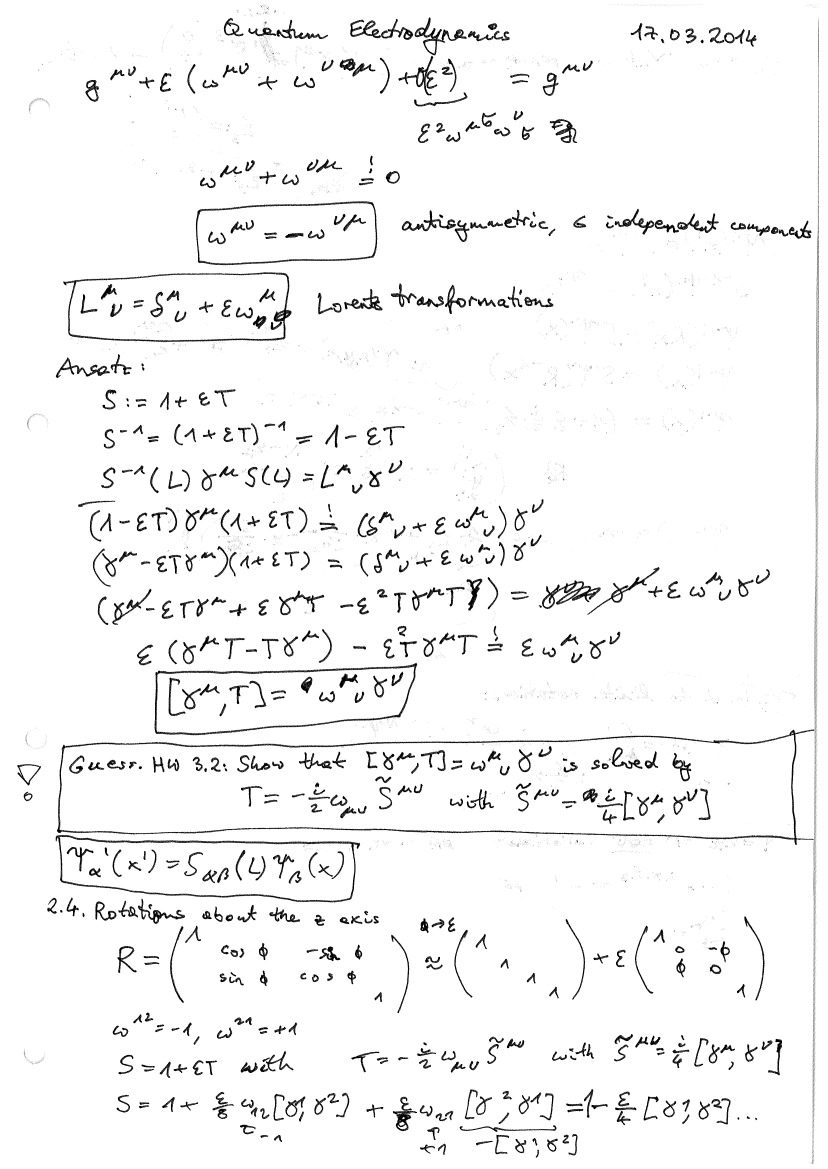 Quantum Electrodynamics 17.03.2014
g^{μν} + ε (ω^{μν} + ω^{νμ}) + O(ε²) = g^{μν}
ε² ω^{μσ} ω^{ν}_{σ}
ω^{μν} + ω^{νμ} =! 0
ω^{μν} = -ω^{νμ} antisymmetric, 6 independent components
L^{μ}_{ν} = δ^{μ}_{ν} + ε ω^{μ}_{ν} Lorentz transformations
Ansatz:
S := 1 + εT
S^{-1} = (1 + εT)^{-1} = 1 - εT
S^{-1}(L) γ^{μ} S(L) = L^{μ}_{ν} γ^{ν}
(1 - εT) γ^{μ} (1 + εT) =! (δ^{μ}_{ν} + ε ω^{μ}_{ν}) γ^{ν}
(γ^{μ} - εTγ^{μ})(1 + εT) = (δ^{μ}_{ν} + ε ω^{μ}_{ν}) γ^{ν}
(γ^{μ} - εTγ^{μ} + εγ^{μ}T - ε²Tγ^{μ}T) = γ^{μ} + ε ω^{μ}_{ν} γ^{ν}
ε (γ^{μ}T - Tγ^{μ}) - ε²Tγ^{μ}T =! ε ω^{μ}_{ν} γ^{ν}
[γ^{μ}, T] = ω^{μ}_{ν} γ^{ν}
Guess. HW 3.2: Show that [γ^{μ}, T] = ω^{μ}_{ν} γ^{ν} is solved by
T = -i/2 ω_{μν} S̃^{μν} with S̃^{μν} = i/4 [γ^{μ}, γ^{ν}]
Ψ_{α}'(x') = S_{αβ}(L) Ψ_{β}(x)
2.4. Rotations about the z axis
R = (1 cos φ -sin φ sin φ cos φ 1) ≈ (1 1 1 1) + ε (1 0 -φ φ 0 1) φ→ε
ω^{12} = -1, ω^{21} = +1
S = 1 + εT with T = -i/2 ω_{μν} S̃^{μν} with S̃^{μν} = i/4 [γ^{μ}, γ^{ν}]
S = 1 + ε/8 ω_{12} [γ^{1}, γ^{2}] + ε/8 ω_{21} [γ^{2}, γ^{1}] = 1 - ε/4 [γ^{1}, γ^{2}] ...
-1 +1 -[γ^{1}, γ^{2}]